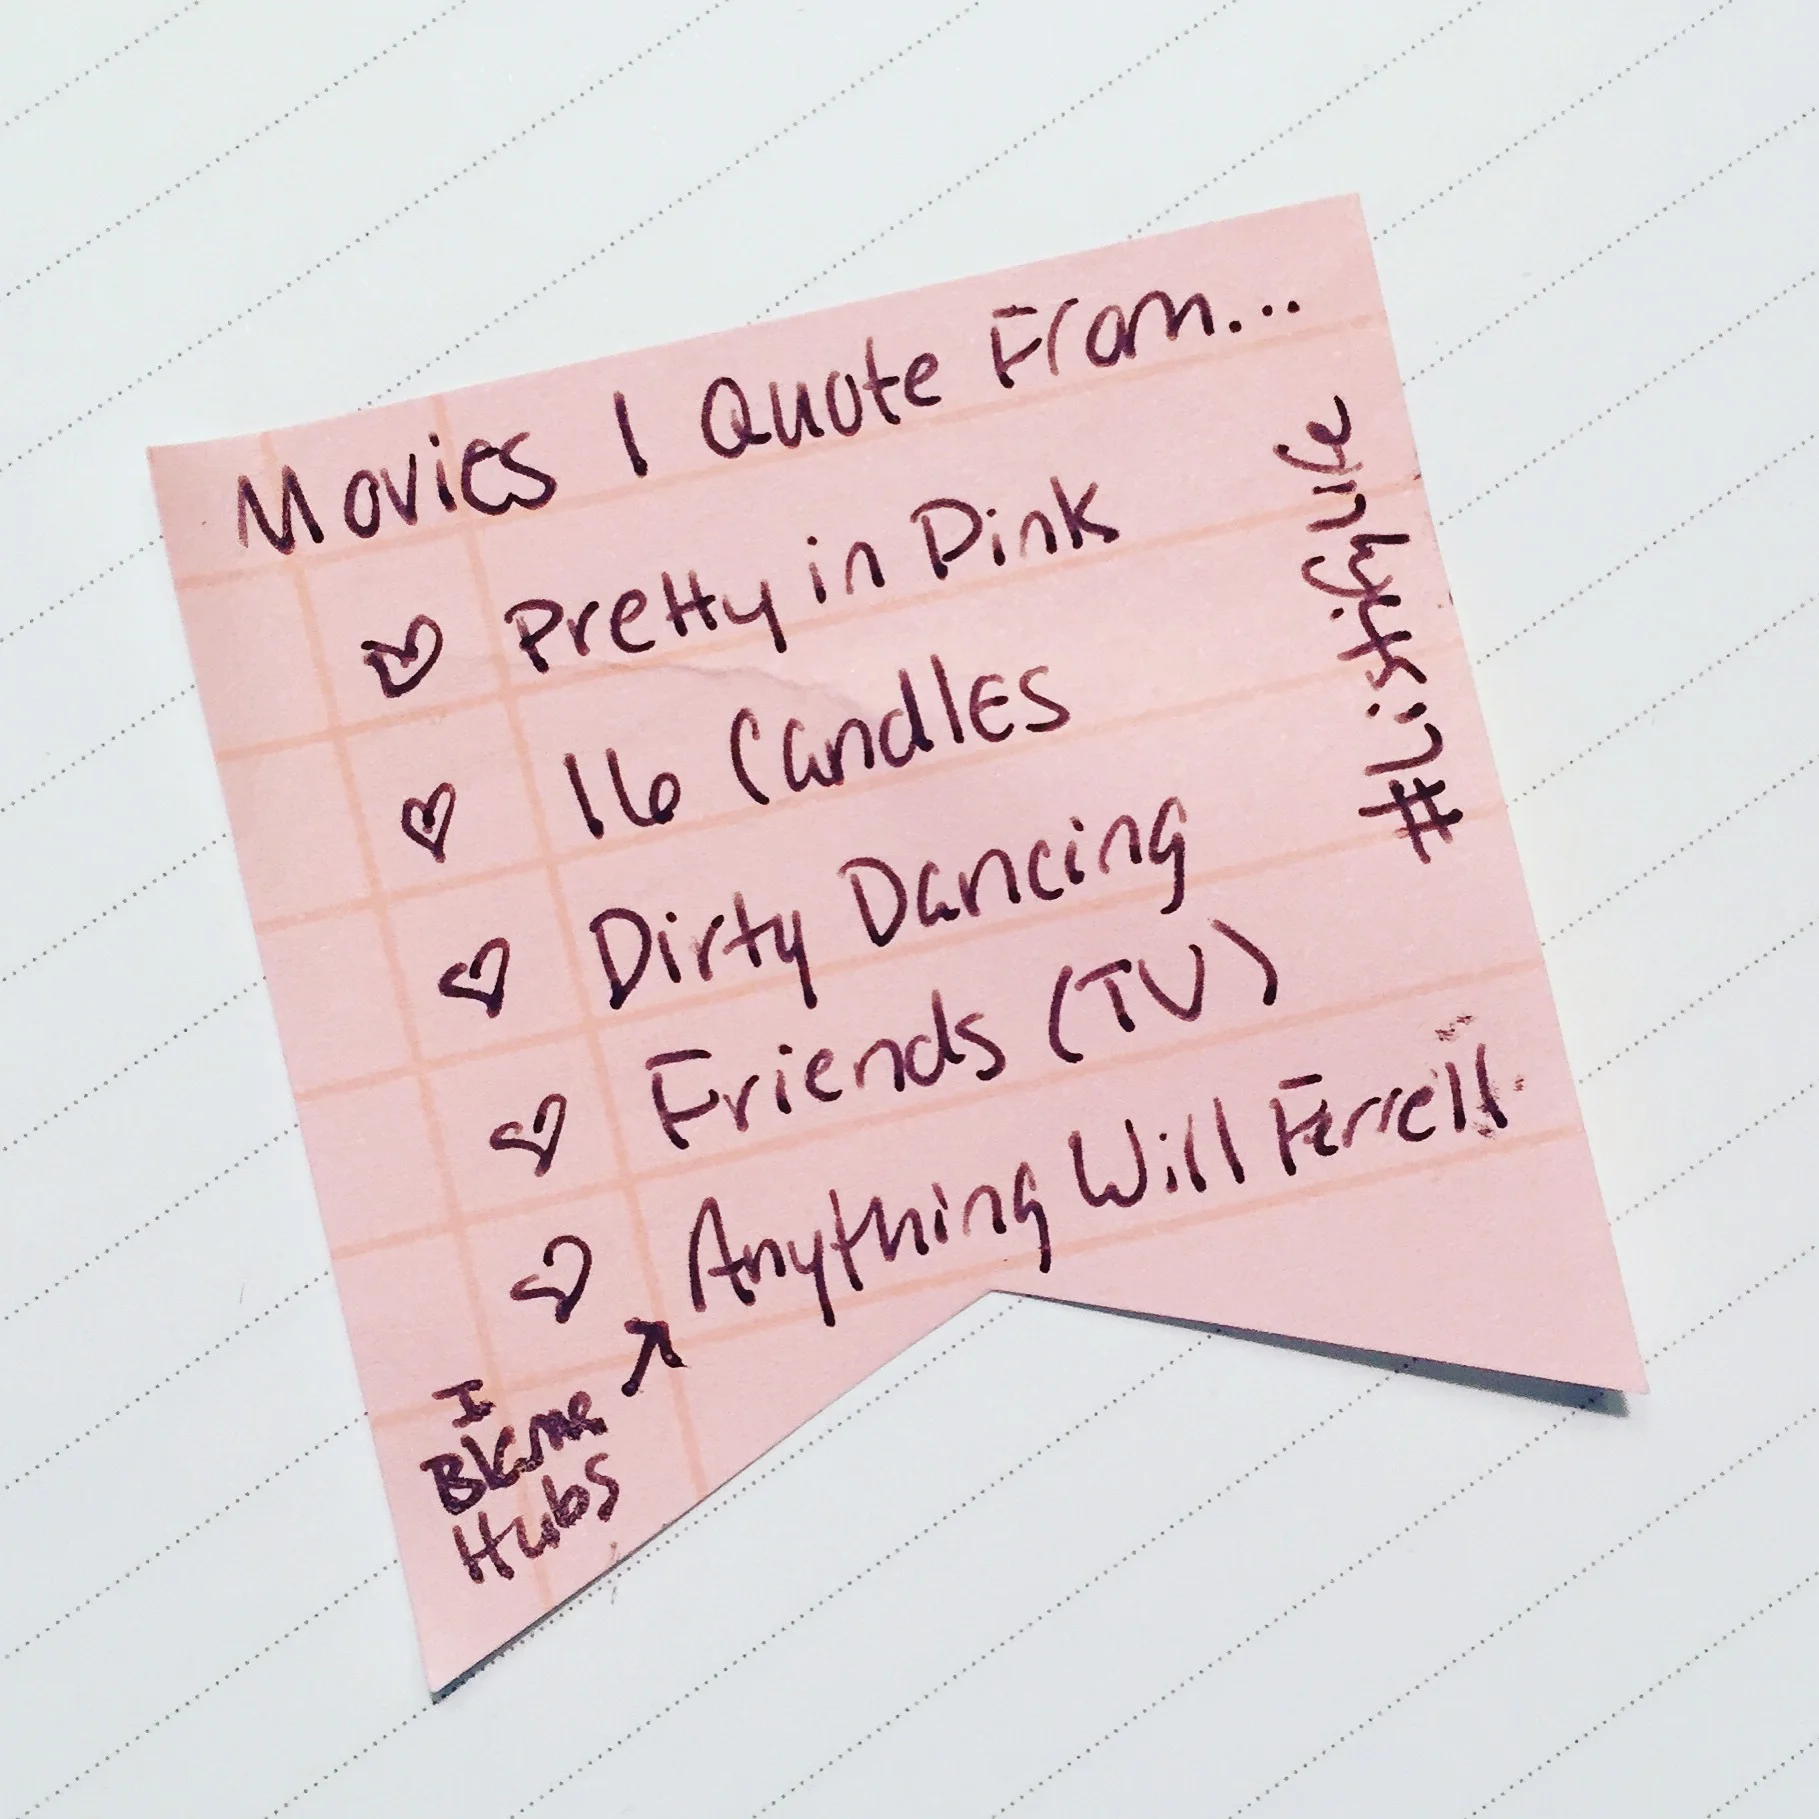 Movies I Quote From...
Pretty in Pink
16 Candles
Dirty Dancing
Friends (TV)
Anything Will Ferrell
I
Blame
Hubs